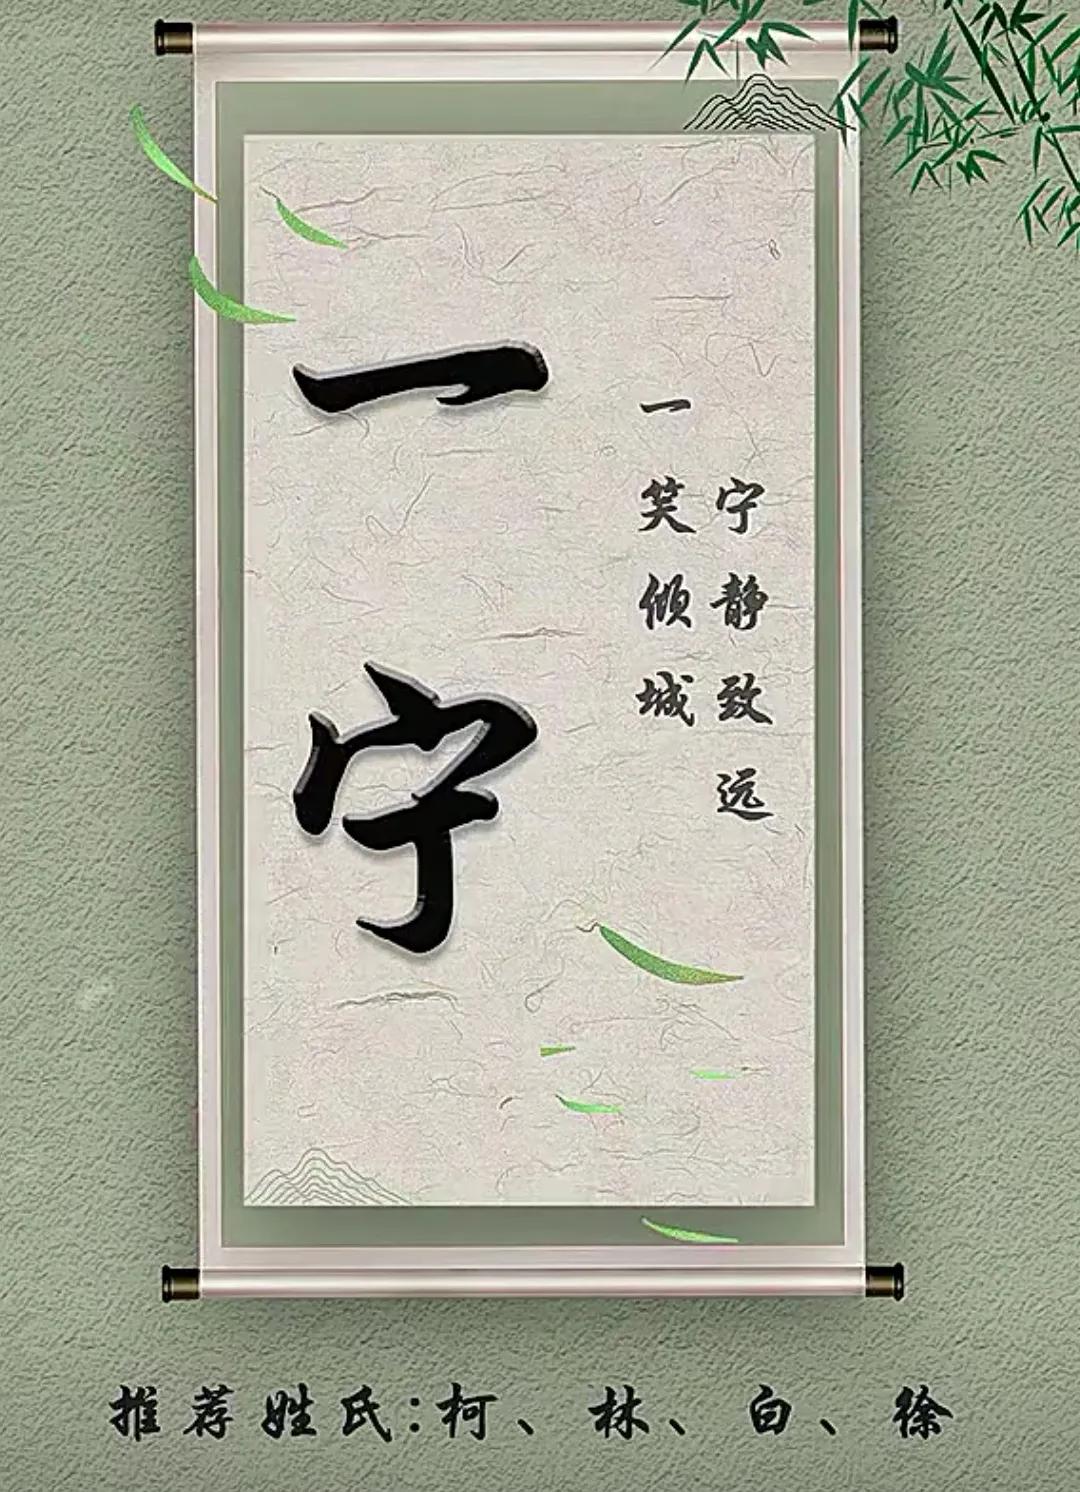 一宁
一笑倾城
宁静致远
推荐姓氏:柯、林、白、徐